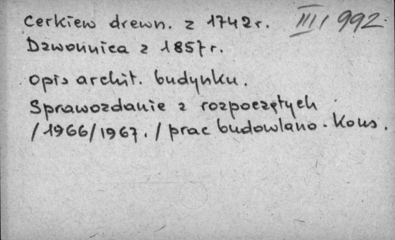 Cerkiew drewn. z 1742 r. III/992.
Dzwonnica z 1857 r.
opis archit. budynku.
Sprawozdanie z rozpoczętych
/1966/1967./ prac budowlano-kons.